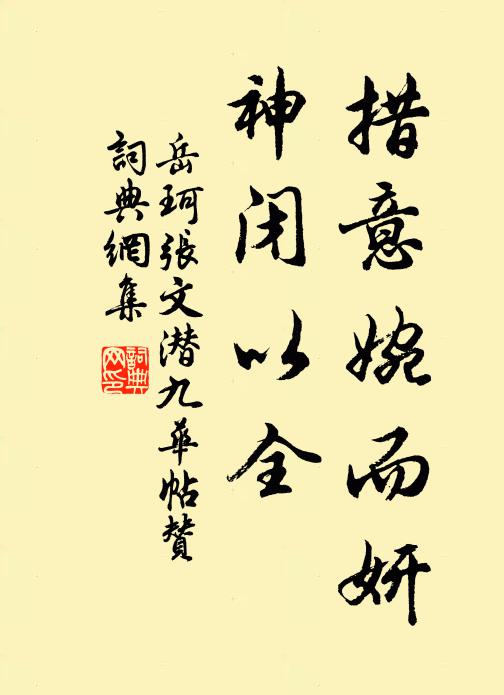 措意婉而妍
神闭以全
岳珂张文潜九华帖赞
词典網集
詞典
网印